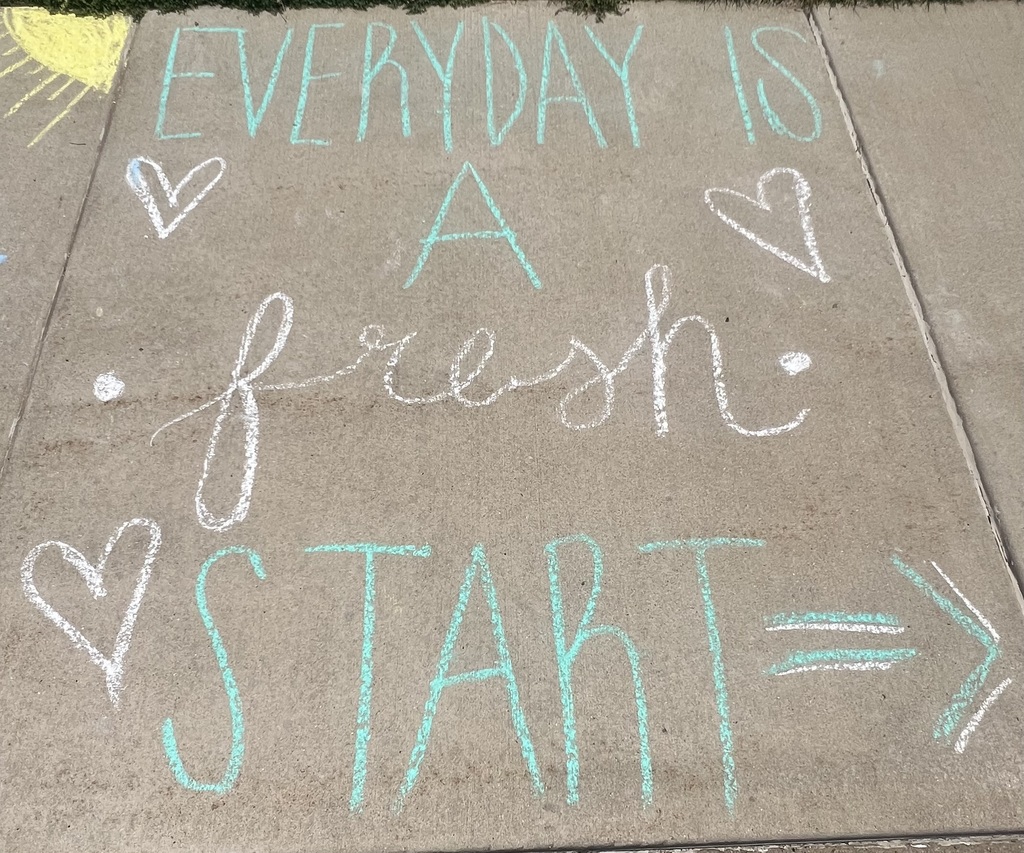 EVERYDAY IS
A
fresh
START